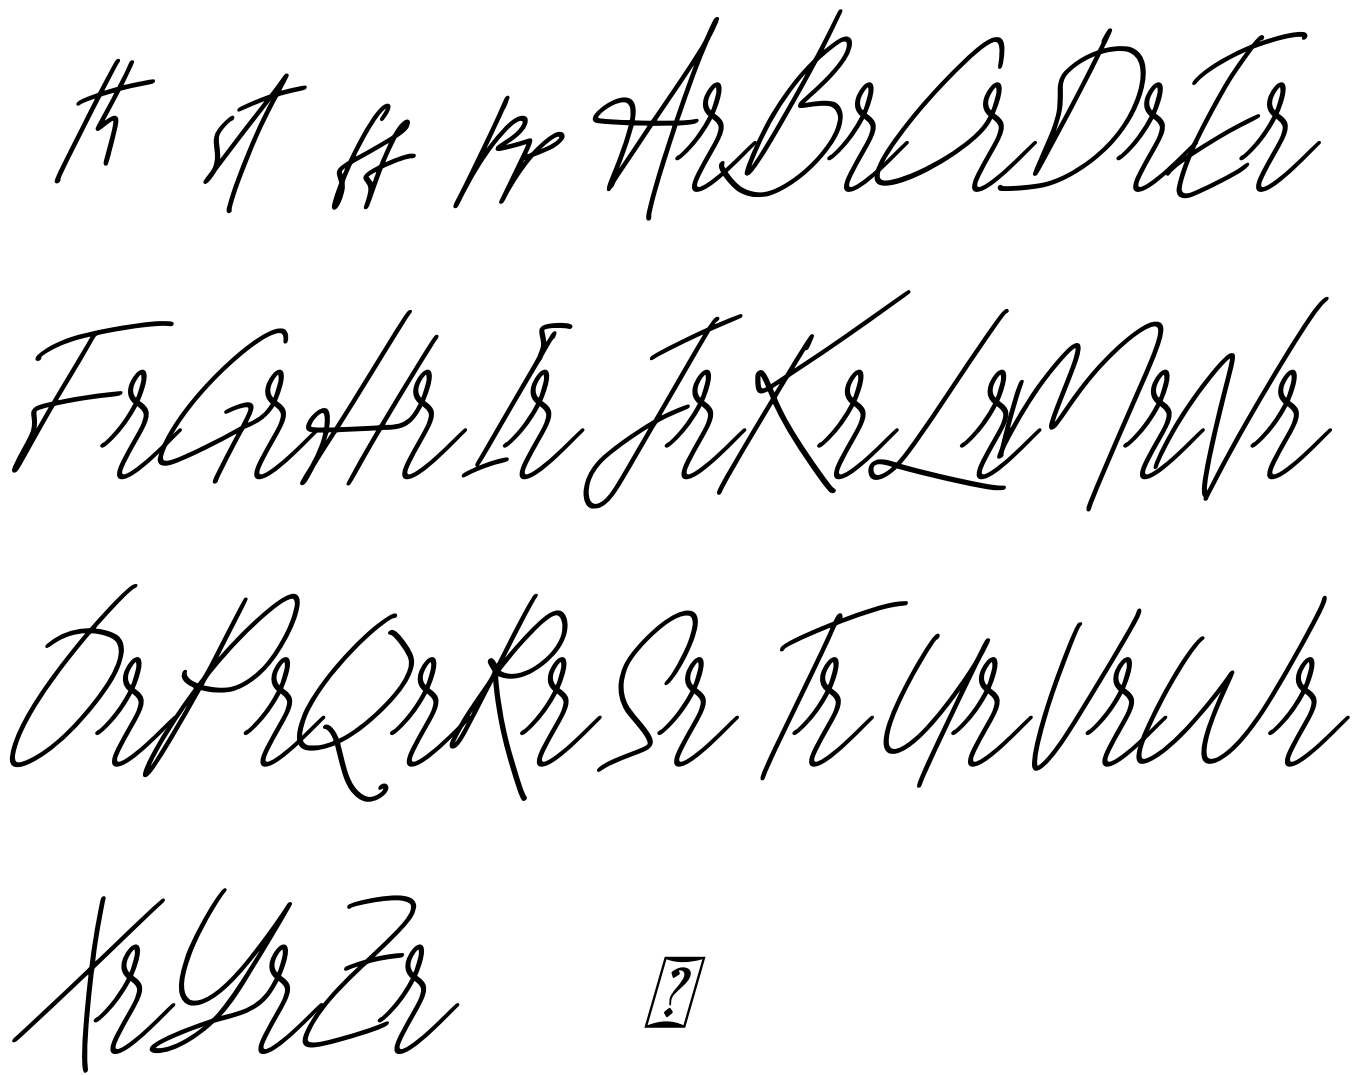 th st ff pp Ar Br Cr Dr Er
Fr Gr Hr Ir Jr Kr Lr Mr Nr
Or Pr Qr Rr Sr Tr Ur Vr Wr
Xr Yr Zr ?